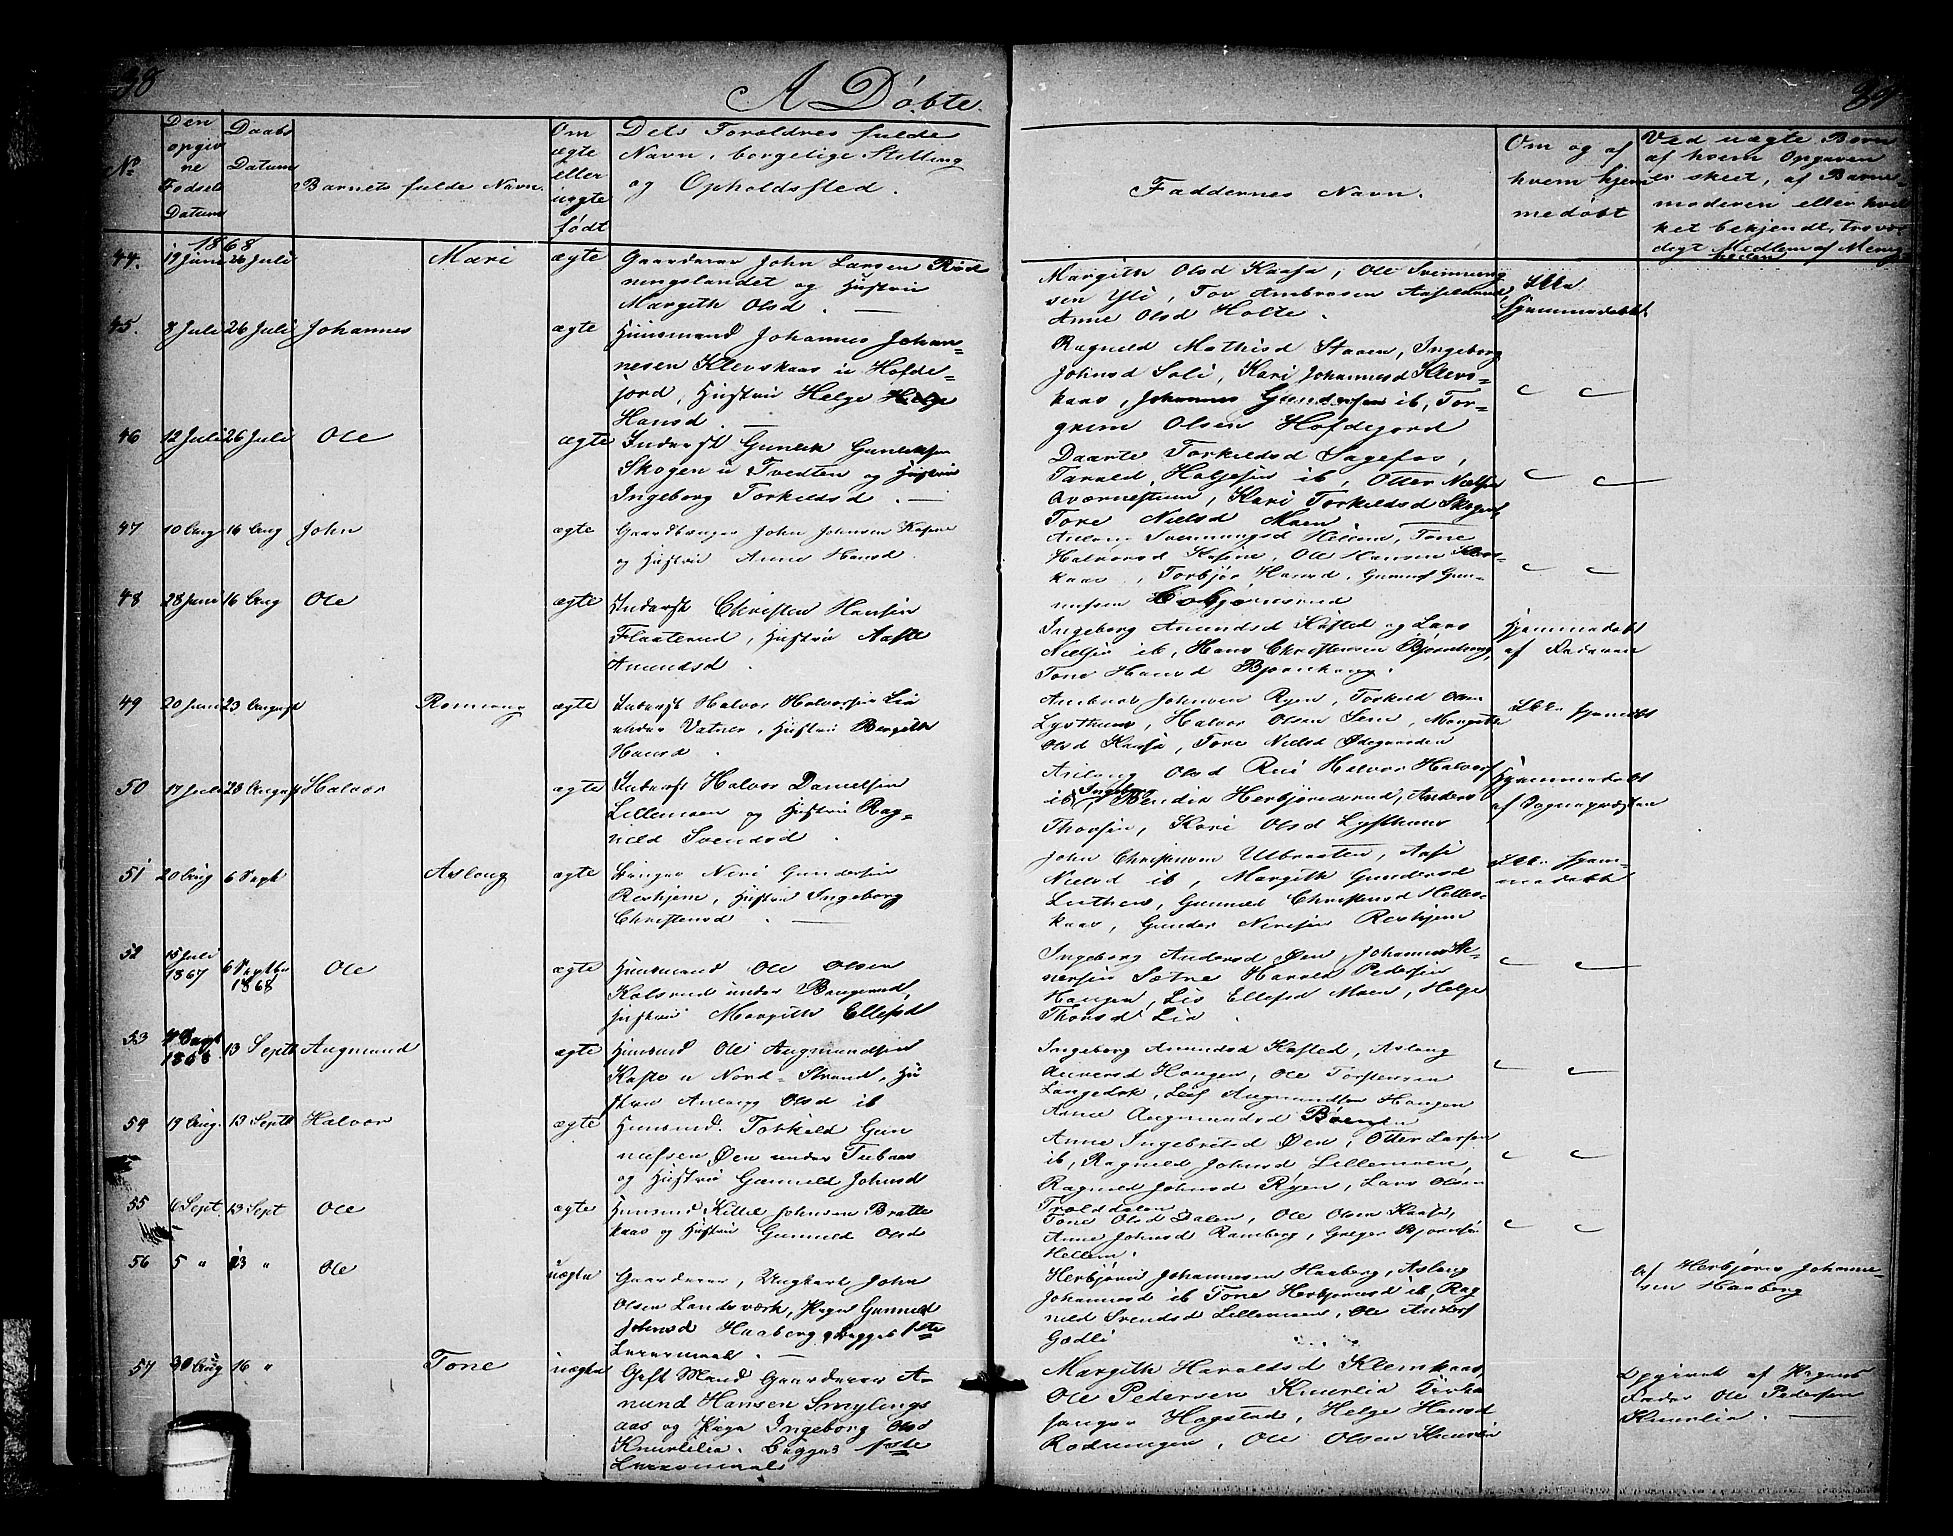 38
A Døbte.
39
No
Den opgivne Fødsels Datum
Daabs Datum
Barnets fulde Navn.
Om ægte eller uægte født
Dets Foreldres fulde
Navn, borgelige Stilling
og Opholdssted.
Faddernes Navn.
Om og af
hvem hjem
medøbt
Ved uægte Børn
af hvem Opgaven
er skeet, af Barne-
moderen eller hvil
ket bekjendt, trovær
digt Medlem af Menig
heden
1868
44. 19 Juni 26 Juli Mari ægte
Gaardener John Larsen Rød
ningslandet og Hustrue
Margith Olsd. —
Margith Olsd Kaasa, Ole Svennung
sen Yli, Tov Ambrosen
Anne Olsd Holte.
Ikke
Hjemmedøbt
45. 8 Juli 26 Juli Johannes ægte
Huusmand Johannes Johan=
nesen Klevskaas u Hofde=
jord, Hustrue Helge
Hansd. —
Ragnild Mathisd Staaen, Ingeborg
Johnsd Soli, Kari Johannesd Klevs=
kaas, Johannes Gundersen ib, Tor=
grim Olsen Hofdejord
46 12 Juli 26 Juli Ole ægte
Inderst Gunlek Gunleksen
Skogen u Tvedten og Hustrue
Ingeborg Torkildsd. —
Daarte Torkildsd Sagefos,
Tarald Holjesen ib, Otter Nielsen
Kari Torkildsd Skogen,
Tore Nielsd Moen
47 10 Aug 16 Aug John ægte
Gaardbruger John Johnsen Kasine
og Hustrue Anne Hansd.
Svennungsd Tone
Halvorsd Kasine, Ole Hansen Klevs-
kaas, Torbjør Hansd, Gunnuf Gun-
nufsen
48 28 Juni 16 Aug Ole ægte
Inderst Christen Hansen
Flaaterud, Hustrue Aaste
Amundsd.
Ingeborg Amundsd Kasted og Lars
Nielsen ib, Hans Christensen Bjørnberg,
Tone Hansd Bjørnberg.
Hjemmedøbt
af Faderen
49 20 Juni 23 August Romoug ægte
Inderst Halvor Halvorsen Lia
under Vatnar, Hustrue Bergith
Hansd.
Ambros Johnsen Ryen, Torkild Olsen
Lysthuus, Halvor Olsen Sem, Margithe
Olsd Kaasa, Tore Nielsd Ødegaarden
Ikke hjemdøbt
50 17 Juli 23 August Halvor ægte
Inderst Halvor Danielsen
Lillemoen og Hustrue Rag=
nild Svendsd.
Aslaug Olsd Rui Halvor Halvors
ib, Ingeborg Bendix Herbjørnsrud, Anders
Thorsen, Kari Olsd Lysthuus
Hjemmedøbt
af Sognepræsten
51 20 Aug 6 Sept Aslaug ægte
Neri Gundersen
Reshjem, Hustrue Ingeborg
Christensd. —
John Christensen Ulbraaten, Aase
Nielsd ib, Margith Gundersd
Gunnild Christensd Helles-
kaas, Gunder Nerisen Reshjem
Ikke hjem-
medøbt
52 15 Juli 1867 6 Septbr 1868 Ole ægte
Huusmand Ole Olsen
Kolsrud under Bøgerud,
Hustrue Margith Ellefsd
Ingeborg Andersd Øen, Johannes
Sætre Harald Pedersen
Haugen, Liv Ellefsd Moen, Helge
Thorsd Lia.
53 4 Sept 1868 13 Septb Augmund ægte
Huusmd Ole Augmundsen
Kaste u Nord=Strand, Hu
strue Aslaug Olsd ib
Ingeborg Amundsd Kasted, Aslaug
Haugen, Ole Torstensen
Langedok, Leif Augmundsen Haugen
Anne Augmundsd Bøen
54 19 Aug. 13 Septb Halvor ægte
Huusmd. Torkild Gun
nufsen Øen under Tubaas
og Hustrue Gunnild Johnsd
Anne Ingebretsd Øen, Otter Larsen
ib, Ragnild Johnsd Lillemoen,
Ragnild Johnsd Ryen, Lars Olsen
Trolddalen
55 6 Sept. 13 Sept Ole ægte
Huusmd Kittel Johnsen Bratte
kaas og Hustrue Gunnild Olsd
Tone Olsd Dalen, Ole Olsen Kaasa,
Anne Johnsd Ramberg, Greger Bjørnsen
Hellem.
56 5 " 13 " Ole uægte
Gaardener, Ungkarl John
Olsen Landsværk, Pigen Gunnild
Johnsd Haaberg begges 1ste
Leiermaal. —
Herbjørn Johannesen Haaberg, Aslaug
Johannesd ib Tone Herbjørnsd ib, Rag
nild Svendsd Lillemoen, Ole Anders
Godli
af Herbjørn Johanne=
sen Haaberg
57 30 Aug 16 " Tone uægte
Gift Mand Gaardener A-
mund Hansen Smylings
aas og Pige Ingeborg Olsd
Knurlelia. Begges 1ste
Leiermaal
Margith Haraldsd Klemkaas,
Ole Pedersen Knurlia Kirke
sanger Hogstad, Helge Hansd
Rodningen, Ole Olsen Knurlia
Opgivet af Pigens
Fader Ole Pedersen
Knurlia. —